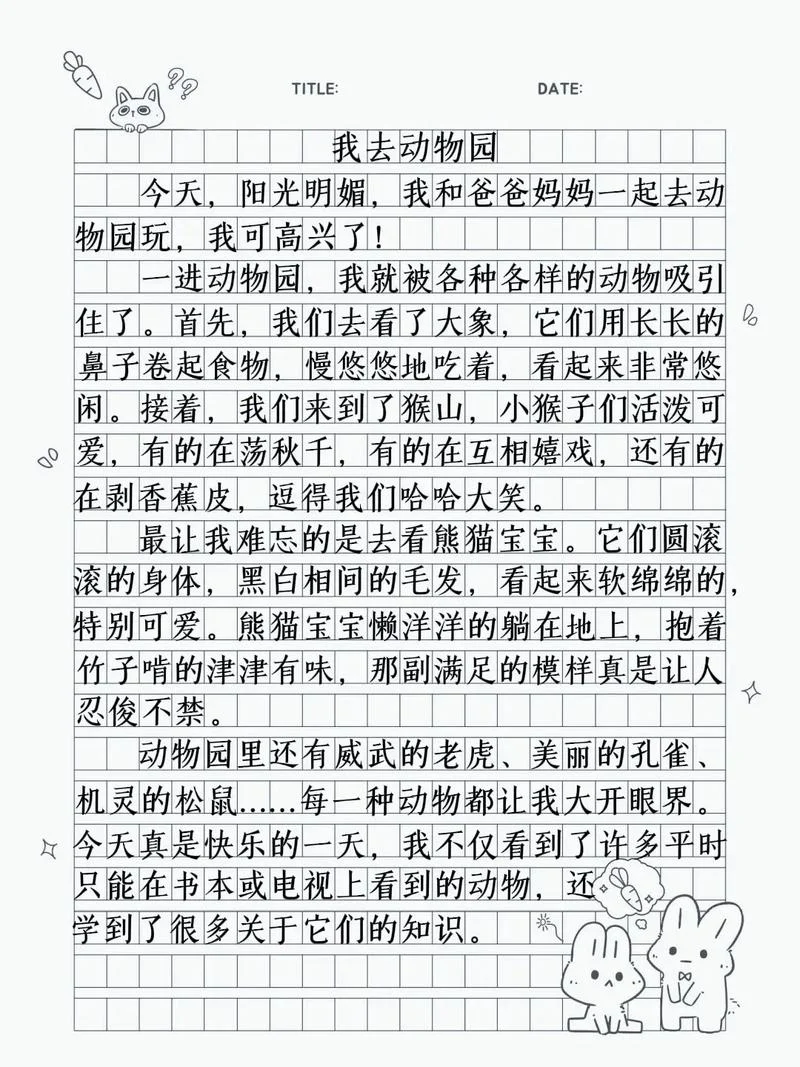 TITLE: DATE:
我去动物园
今天，阳光明媚，我和爸爸妈妈一起去动
物园玩，我可高兴了！
一进动物园，我就被各种各样的动物吸引
住了。首先，我们去看了大象，它们用长长的
鼻子卷起食物，慢悠悠地吃着，看起来非常悠
闲。接着，我们来到了猴山，小猴子们活泼可
爱，有的在荡秋千，有的在互相嬉戏，还有的
在剥香蕉皮，逗得我们哈哈大笑。
最让我难忘的是去看熊猫宝宝。它们圆滚
滚的身体，黑白相间的毛发，看起来软绵绵的，
特别可爱。熊猫宝宝懒洋洋的躺在地上，抱着
竹子啃的津津有味，那副满足的模样真是让人
忍俊不禁。
动物园里还有威武的老虎、美丽的孔雀、
机灵的松鼠……每一种动物都让我大开眼界。
今天真是快乐的一天，我不仅看到了许多平时
只能在书本或电视上看到的动物，还
学到了很多关于它们的知识。